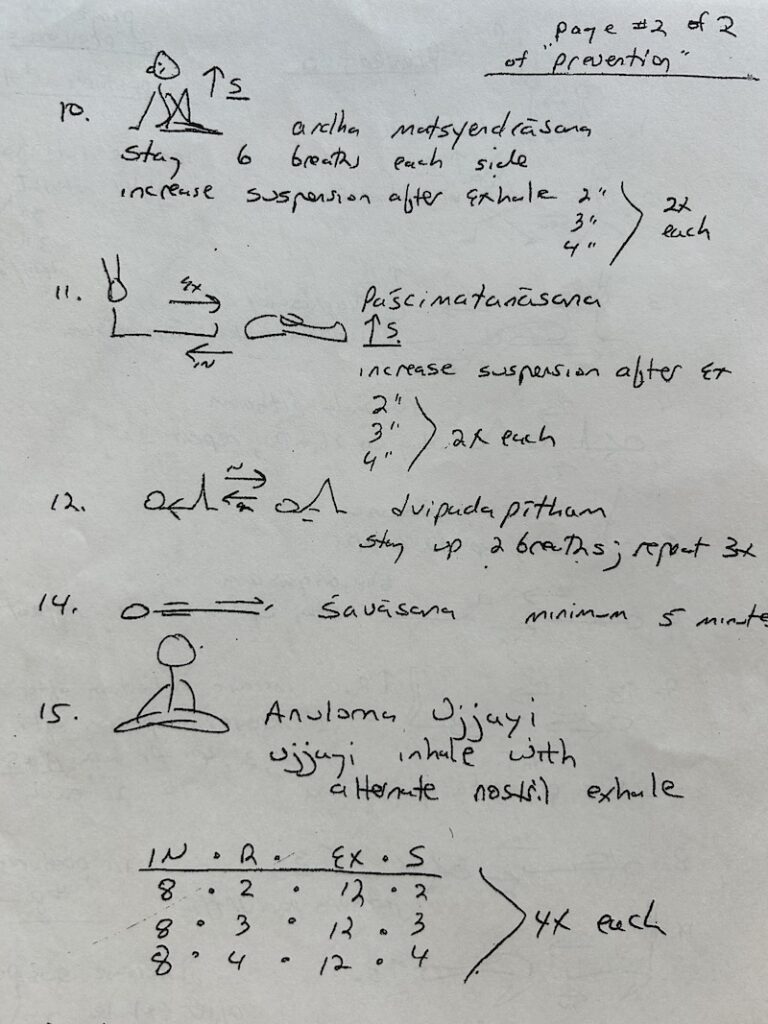 page #2 of 2
of "prevention"
10. ↑ S
ardha matsyendrāsana
stay 6 breaths each side
increase suspension after exhale 2"
3"
4"
2x
each
11. Ex
IN
Paścimatanāsana
↑ S.
increase suspension after Ex
2"
3"
4"
2x each
12. IN
Ex
dvipada pītham
stay up 2 breaths; repeat 3x
14. śavāsana minimum 5 minute
15. Anuloma Ujjayi
ujjayi inhale with
alternate nostril exhale
IN · R · EX · S
8 · 2 · 12 · 2
8 · 3 · 12 · 3
8 · 4 · 12 · 4
4x each